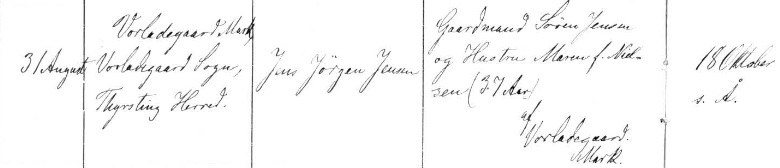 31 August
Vorladegaard Mark,
Vorladegaard Sogn,
Thyrsting Herred.
Jens Jörgen Jensen
Gaardmand Søren Jensen
og Hustru Maren f. Niel-
sen (37 Aar)
af
Vorladegaard
Mark.
18 Oktober
s. Å.